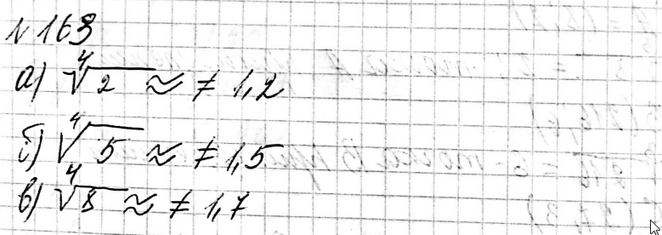 N 163
а) ∜2 ≈ ≠ 1,2
б) ∜5 ≈ ≠ 1,5
в) ∜8 ≈ ≠ 1,7